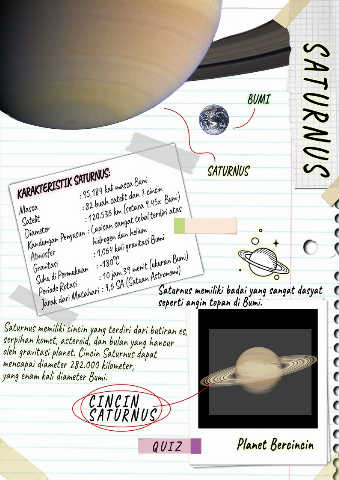 SATURNUS
BUMI
SATURNUS
KARAKTERISTIK SATURNUS:
Massa : 95,189 kali massa Bumi
Satelit : 82 buah satelit dan 7 cincin
Diameter : 120.536 km (setara 9,45x Bumi)
Kandungan Penyusun : Lapisan sangat tebal terdiri atas
Atmosfer hidrogen dan helium
Gravitasi : 1,064 kali gravitasi Bumi
Suhu di Permukaan : -130°C
Periode Rotasi : 10 jam 39 menit (ukuran Bumi)
Jarak dari Matahari : 9,5 SA (Satuan Astronomi)
Saturnus memiliki badai yang sangat dasyat
seperti angin topan di Bumi.
Saturnus memiliki cincin yang terdiri dari butiran es,
serpihan komet, asteroid, dan bulan yang hancur
oleh gravitasi planet. Cincin Saturnus dapat
mencapai diameter 282.000 kilometer,
yang enam kali diameter Bumi.
CINCIN
SATURNUS
QUIZ
Planet Bercincin